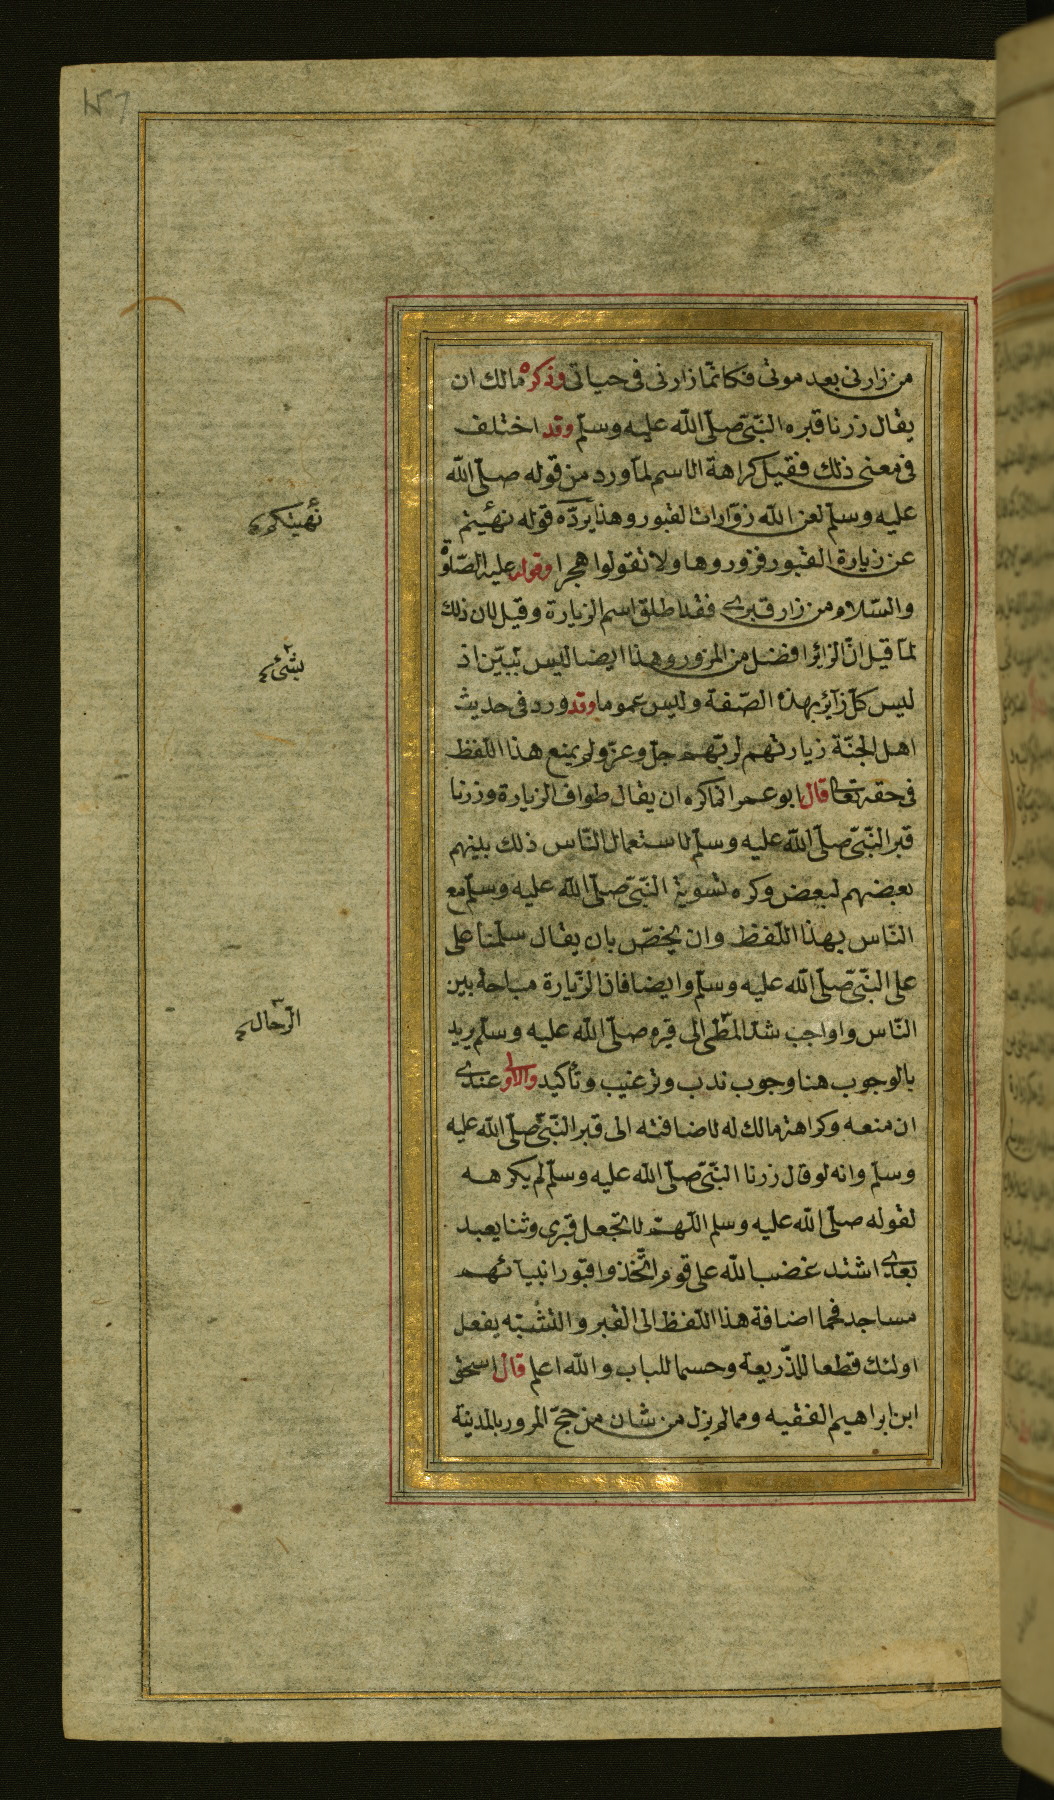 من زارنى بعد موتى فكانّما زارنى فى حياتى وذكره مالك ان
يقال زرنا قبره النّبىّ صلّى اللّه عليه وسلّم وقد اختلف
فى معنى ذلك فقيل كراهة الاسم لمآ ورد من قوله صلّى اللّه
عليه وسلّم لعن اللّه زوّارات القبور وهذا يردّه قوله نهيتم
عن زيارة القبور فزوروها ولا تقولوا هجرا وقوله عليه الصّلوة
والسّلام من زار قبرى فقد اطلق اسم الزيارة وقيل لان ذلك
لمآ قيل انّ الزائر افضل من المزور وهذا ايضا ليس ببيّن اذ
ليس كلّ زآئر بهذه الصّفة وليس عموما وقد ورد فى حديث
اهل الجنّة زيارتهم لربّهم جلّ وعزّ ولم يمنع هذا اللّفظ
فى حقه تعالى قال ابو عمر انّما كره ان يقال طواف الزيارة وزرنا
قبر النّبىّ صلّى اللّه عليه وسلّم لاستعمال النّاس ذلك بينهم
بعضهم لبعض وكره تسوية النّبىّ صلّى اللّه عليه وسلّم مع
النّاس بهذا اللّفظ وان يخصّ بان يقال سلّمنا على
على النّبىّ صلّى اللّه عليه وسلّم وايضا فان الزّيارة مباحة بين
النّاس و اواجب شدّ المطّى الى قبره صلّى اللّه عليه وسلّم يريد
بالوجوب هنا وجوب ندب وترغيب وتأكيد والاولى عندى
ان منعه وكراهة مالك له لاضافته الى قبر النّبىّ صلّى اللّه عليه
وسلّم وانه لو قال زرنا النّبىّ صلّى اللّه عليه وسلّم لم يكرهه
لقوله صلّى اللّه عليه وسلم اللّهمّ لا تجعل قبرى وثنا يعبد
بعدى اشتد غضب اللّه على قوم اتّخذوا قبور انبيآئهم
مساجد فحما اضافة هذا اللّفظ الى القبر والتشبّه يفعل
اولئك قطعا للذّريعة وحسما للباب واللّه اعلم قال اسحق
ابن ابراهيم الفقيه ومما لم يزل من شان من حجّ المرور بالمدينة
نهيتكم
بشئ
الرّحال